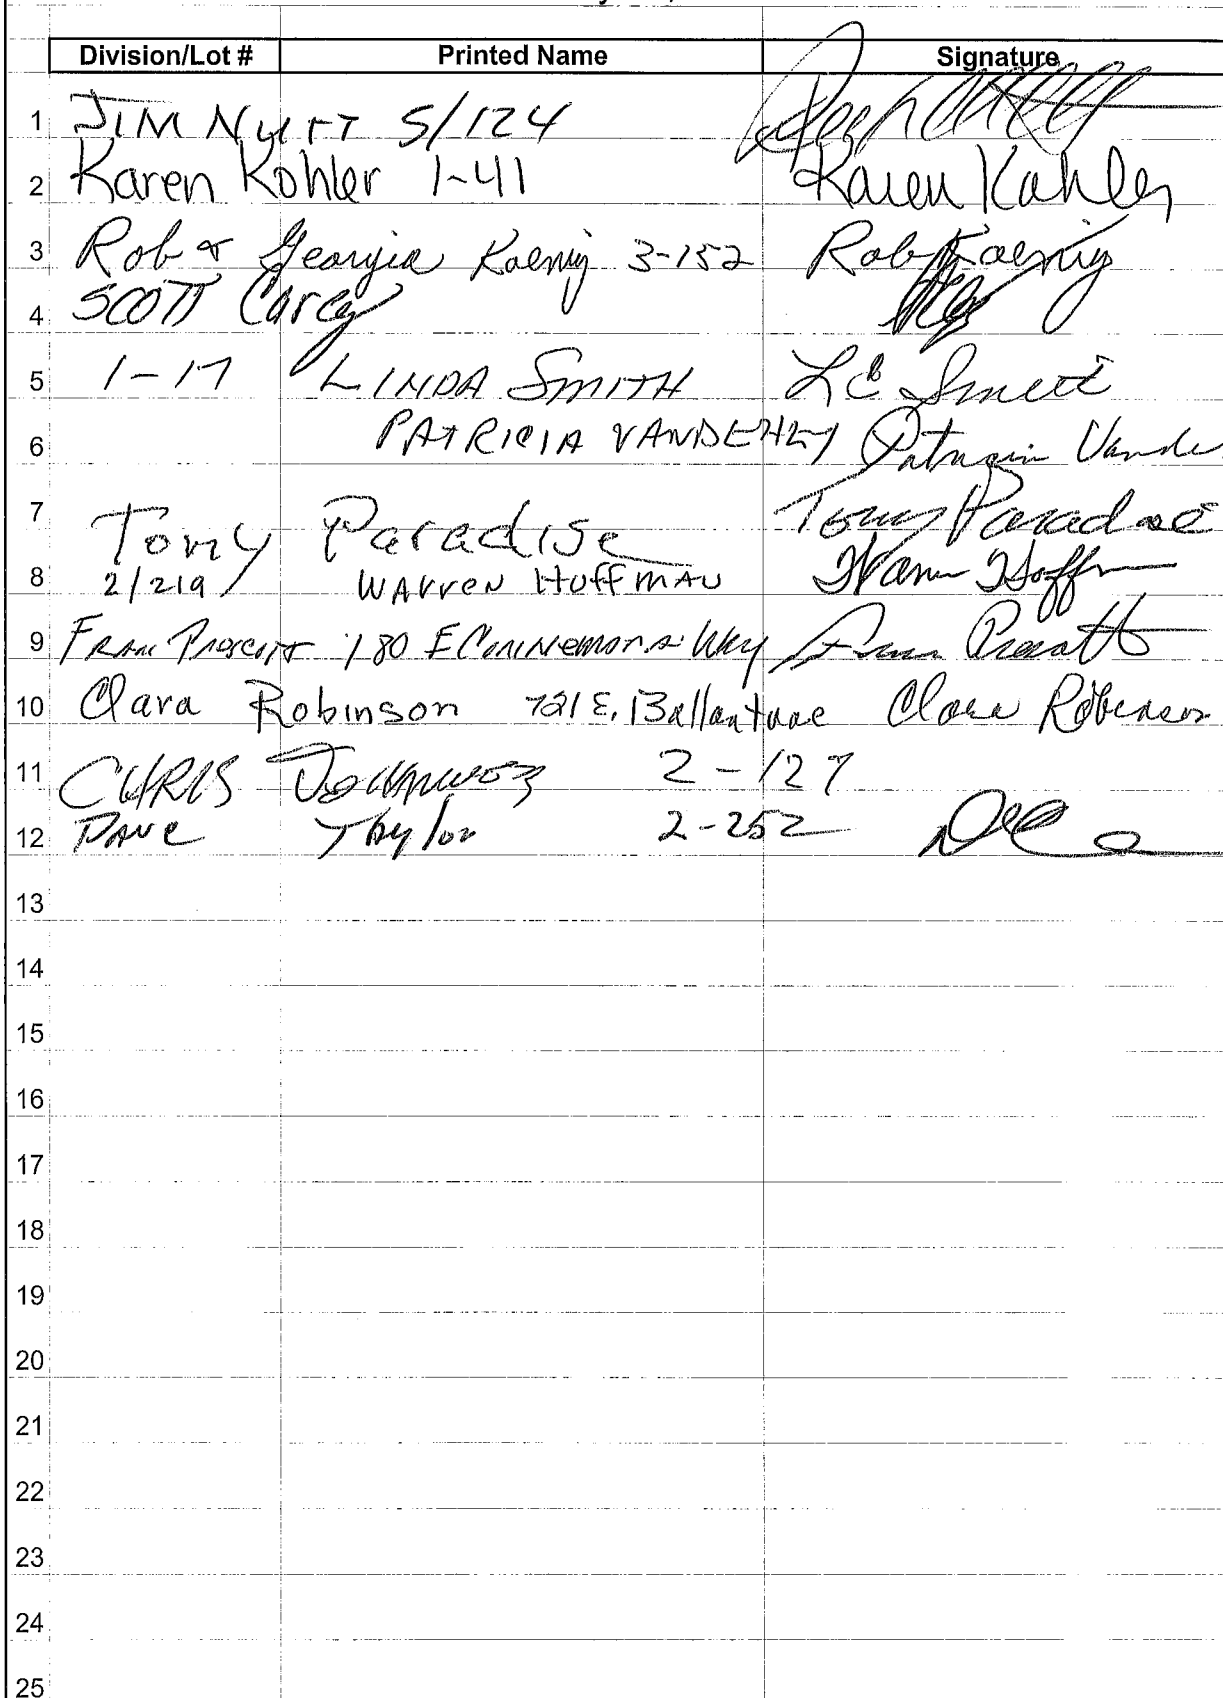 Division/Lot # Printed Name Signature
1 JIM NUTT 5/124
2 Karen Kohler 1-41 Karen Kohler
3 Rob & Georgia Koenig 3-152 Rob Koenig
4 SCOTT Carey
5 1-17 LINDA SMITH LC Smith
6 PATRICIA VANDEHEY Patricia Vande
7 Tony Paradise Tony Paradise
8 2/219 WARREN HUFFMAN Warren Hoffm
9 FRAN Prescott 180 E Connemara Way Fran Prescott
10 Clara Robinson 721 E. Ballantrae Clara Robinson
11 CHRIS 2-127
12 DAVE Taylor 2-252
13
14
15
16
17
18
19
20
21
22
23
24
25